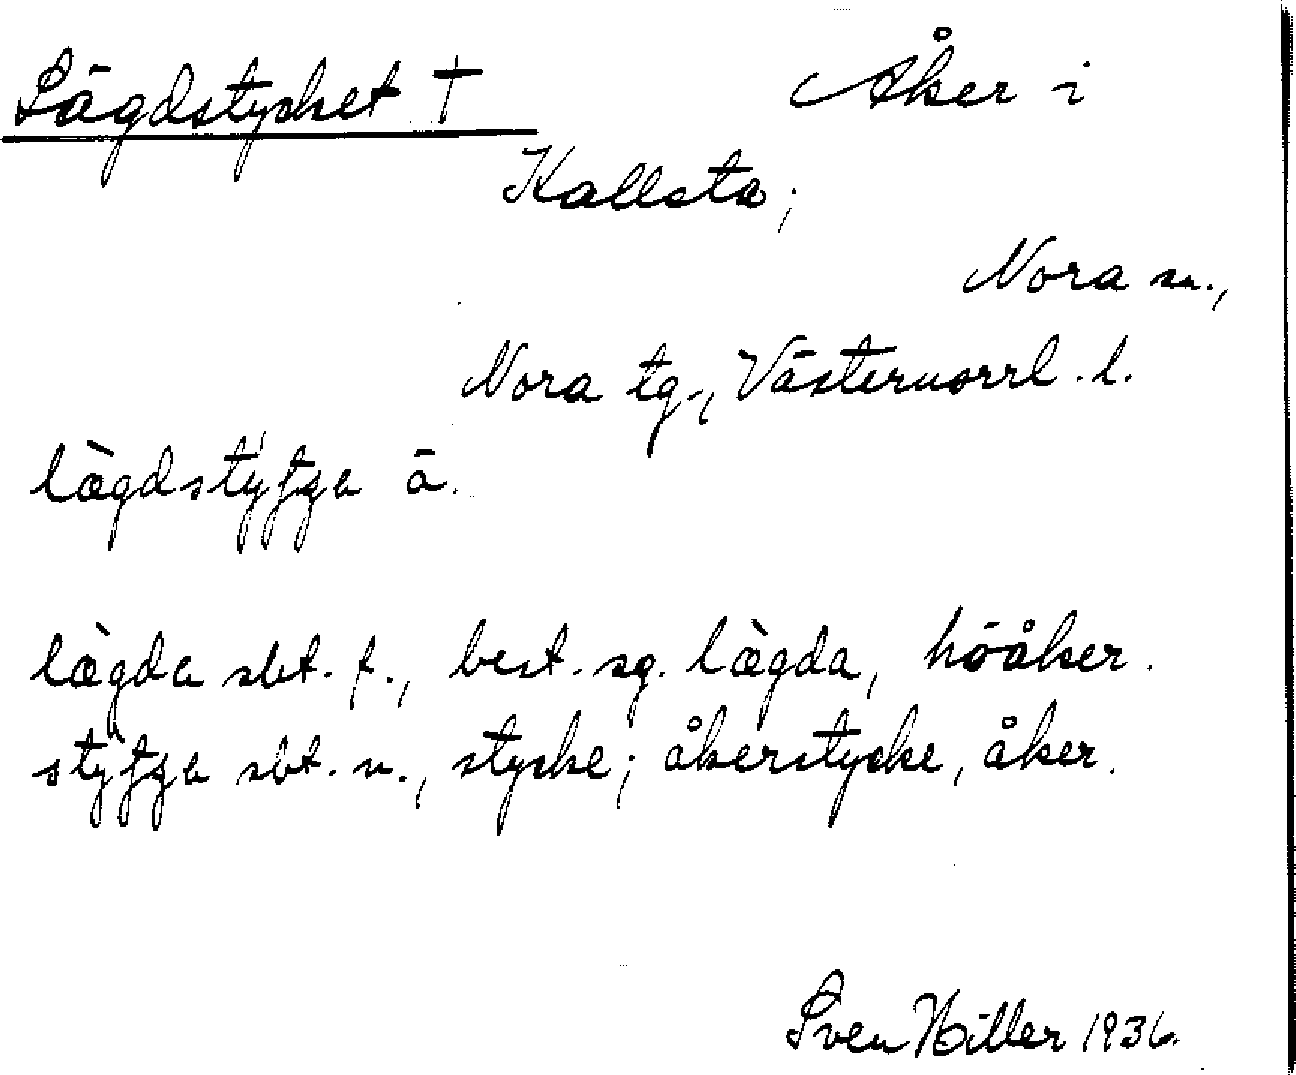 Lägdstycket †
Åker i
Kallsta;
Nora sn.,
Nora tg., Västernorrl. l.
lægdstytʒa ä.
lægda sbt. f., best. sg. lægda, höåker.
stytʒa sbt. n., stycke; åkerstycke, åker.
Sven Hiller 1936.